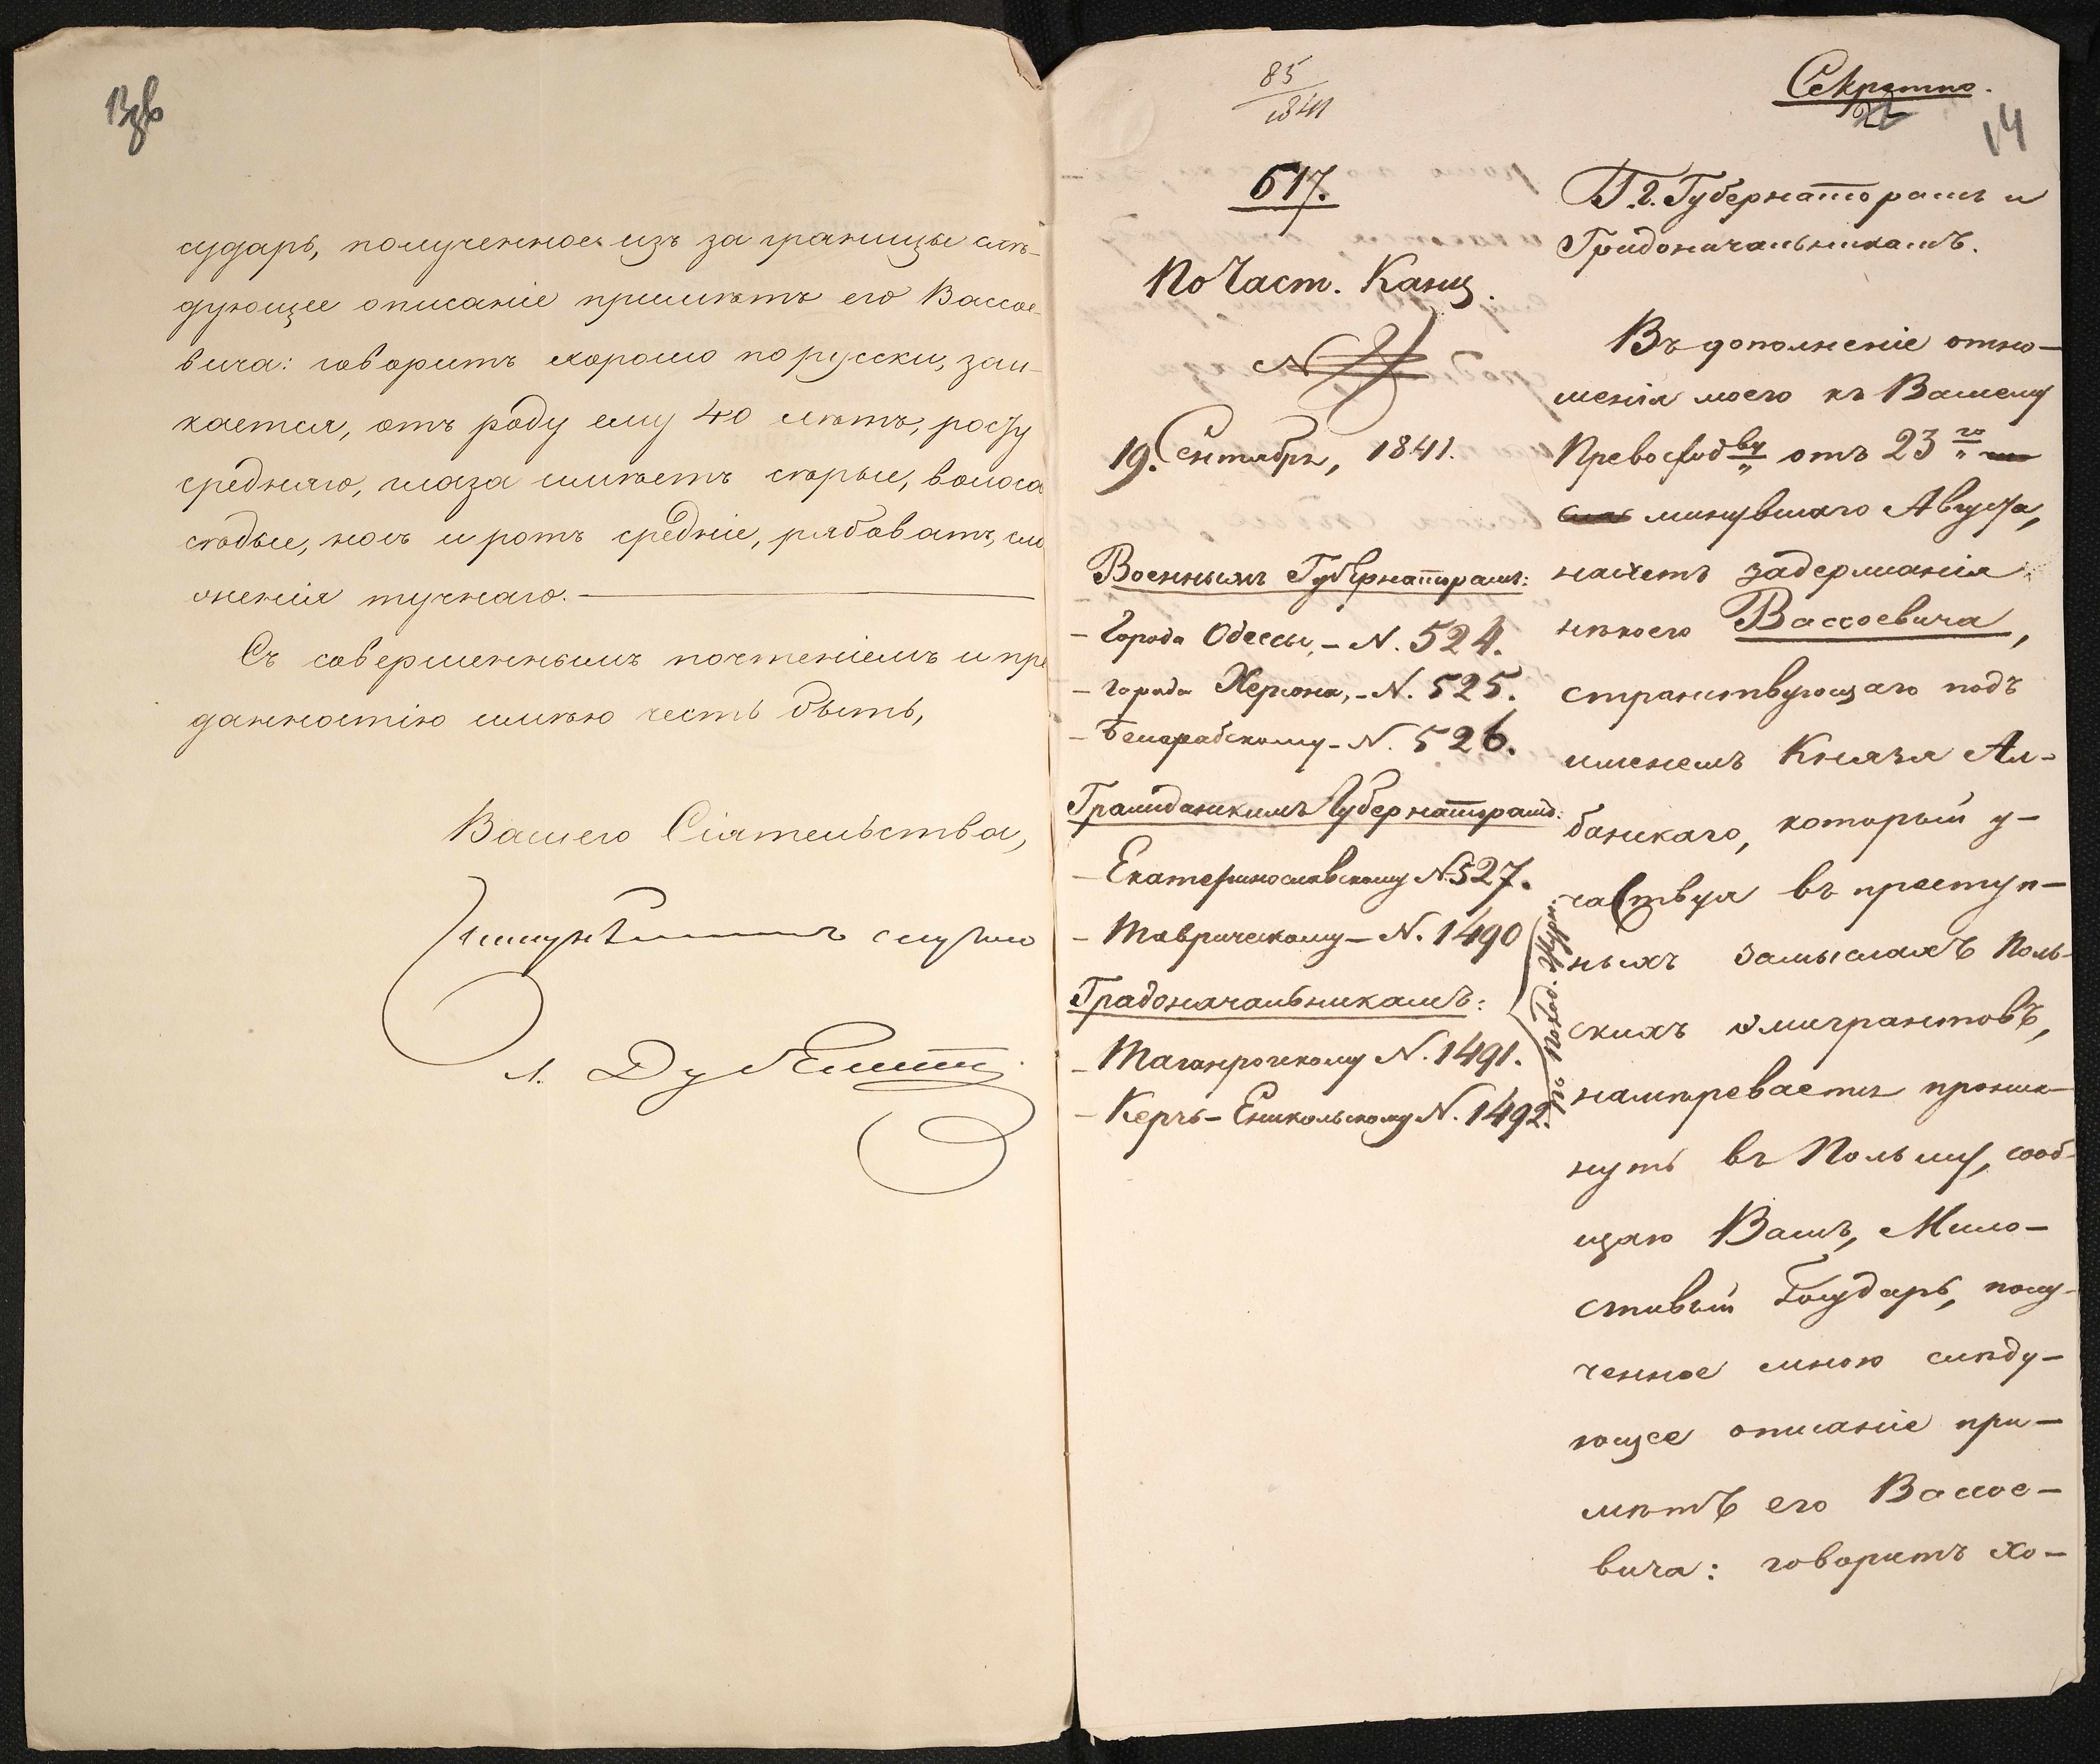 13об
сударь, полученное изъ за границы слѣ-
дующее описаніе примѣтъ его Вассое-
вича: говоритъ хорошо порусски, заи-
кается, отъ роду ему 40 лѣтъ, росту
средняго, глаза имѣетъ сѣрые, волоса
сѣдые, носъ и ротъ средніе, рябоватъ, сло
женія тучнаго.
Съ совершеннымъ почтеніемъ и пре
данностію имѣю честь быть,
Вашего Сіятельства,
слугою
Л. Дубельтъ
85
1841
617.
По Част. Канц.
N
19. Сентября, 1841.
Военнымъ Губернаторамъ:
– Города Одессы, – N. 524.
– города Херсона, – N. 525.
– Бессарабскому – N. 526.
Гражданскимъ Губернаторамъ:
– Екатеринославскому N. 527.
– Таврическому – N. 1490
Градоначальникамъ:
– Таганрогскому N. 1491.
– Керчь-Еникольскому N. 1492.
по Поход. Журн.
Секретно.
14
Г.г. Губернаторамъ и
Градоначальникамъ.
Въ дополненіе отно-
шенія моего къ Вашему
Превосходву отъ 23го
минувшаго Августа,
насчетъ задержанія
нѣкоего Вассоевича,
странствующаго подъ
именемъ Князя Ал-
банскаго, который у-
частвуя въ преступ-
ныхъ замыслахъ Поль-
скихъ эмигрантовъ,
намѣревается проник-
нуть въ Польшу, сооб-
щаю Вамъ, Мило-
стивый Государь, полу-
ченное мною слѣду-
ющее описаніе при-
мѣтъ его Вассое-
вича: говоритъ хо-